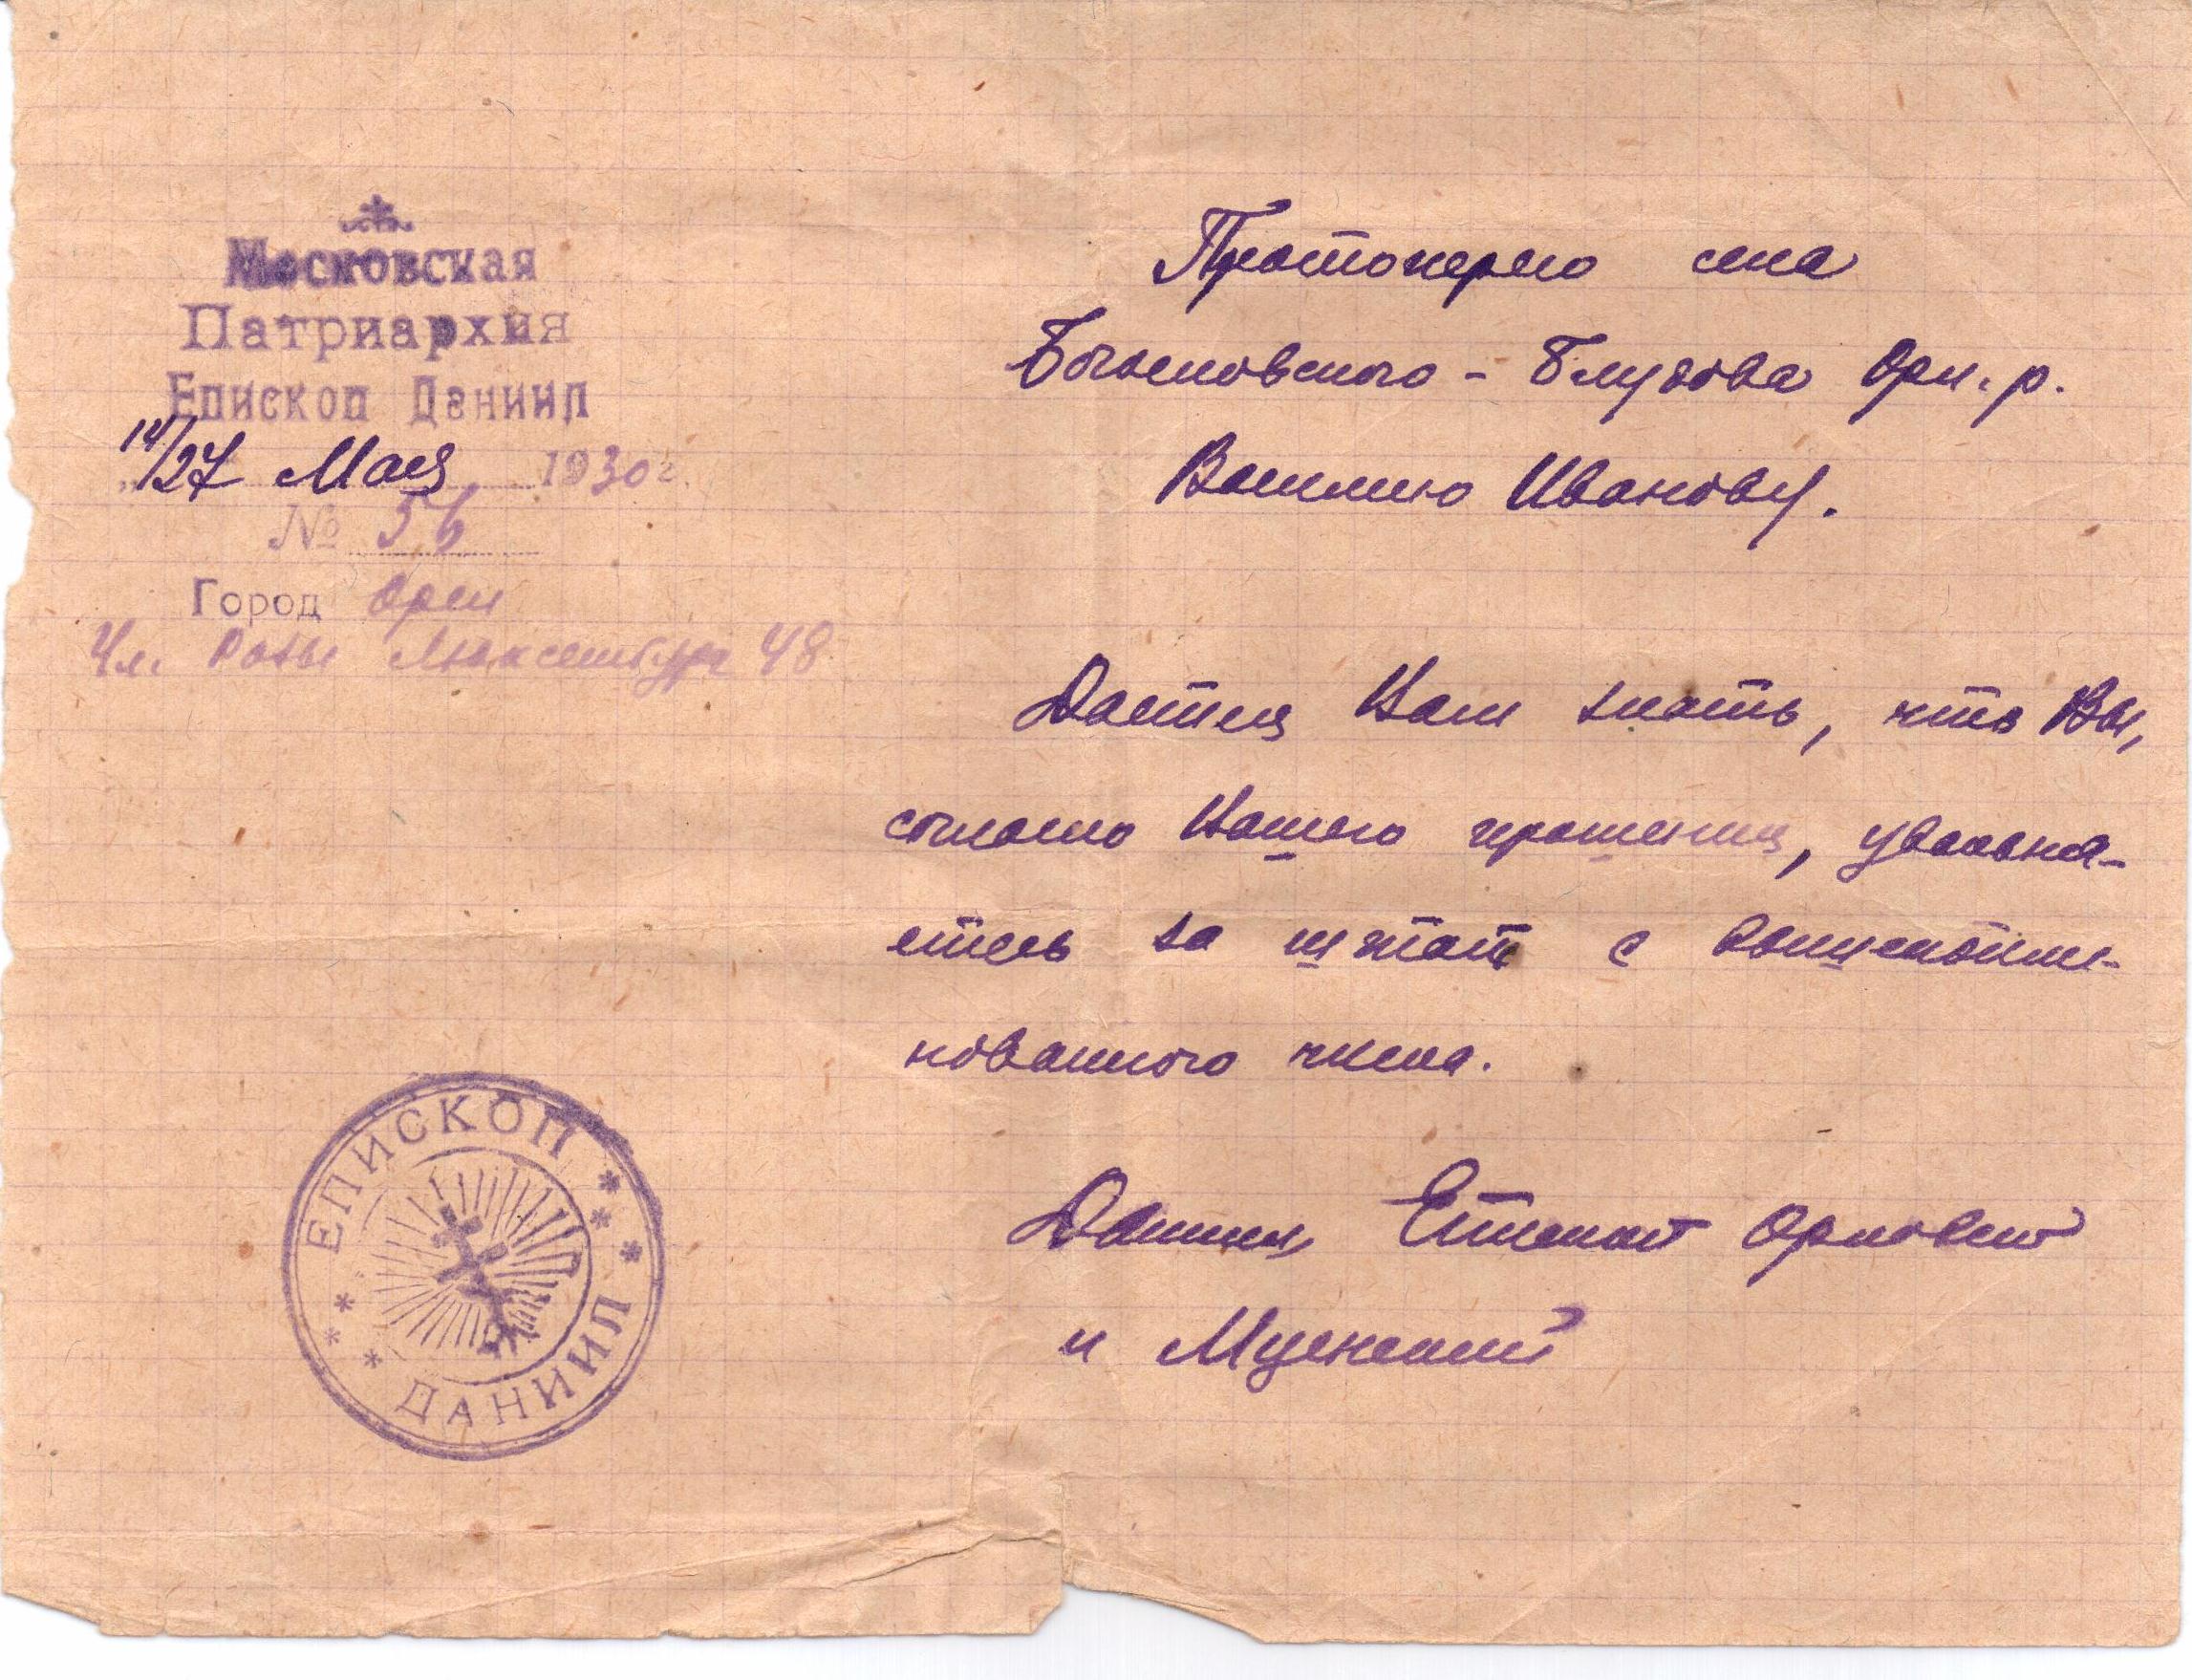 Московская
Патриархия
Епископ Даниил
14/27 Мая 1930 г.
№ 56
Город Орел
Ул. Розы Люксембург 48
Протоиерею села
Богословского - Блудова Орл. р.
Василию Иванову.
Дается Вам знать, что Вы,
согласно Вашего прошения, увольня-
етесь за штат с
нованного числа.
Даниил, Епископ Орловский
и Мценский
ЕПИСКОП
ДАНИИЛ